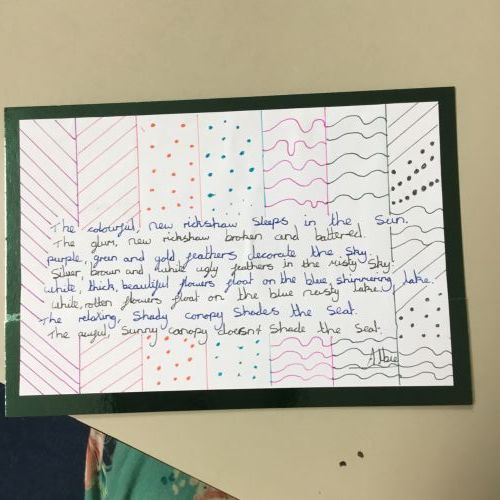 The colourful, new rickshaw sleeps in the sun.
The glum, new rickshaw broken and battered.
purple, green and gold feathers decorate the sky.
Silver, brown and white ugly feathers in the misty sky.
white, thick, beautiful flowers float on the blue, shimmering lake.
white, rotten flowers float on the blue nasty lake.
The relaxing, shady canopy shades the seat.
The, sunny canopy doesn't shade the seat.
Albie